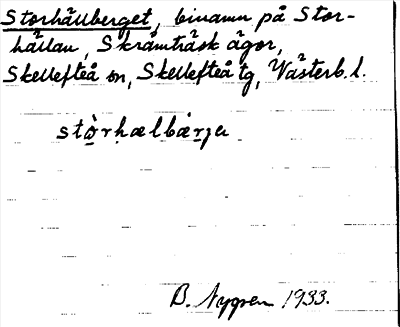 Storhällberget, binamn på Stor-
hällan, Skråmträsk ägor,
Skellefteå sn, Skellefteå tg, Västerb. l.
stò̱rḥælbárja
B. Nygren 1933.